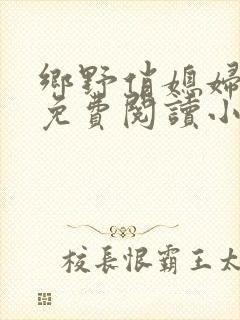 鄉野俏媳婦
免費閱讀小
校長恨霸王太